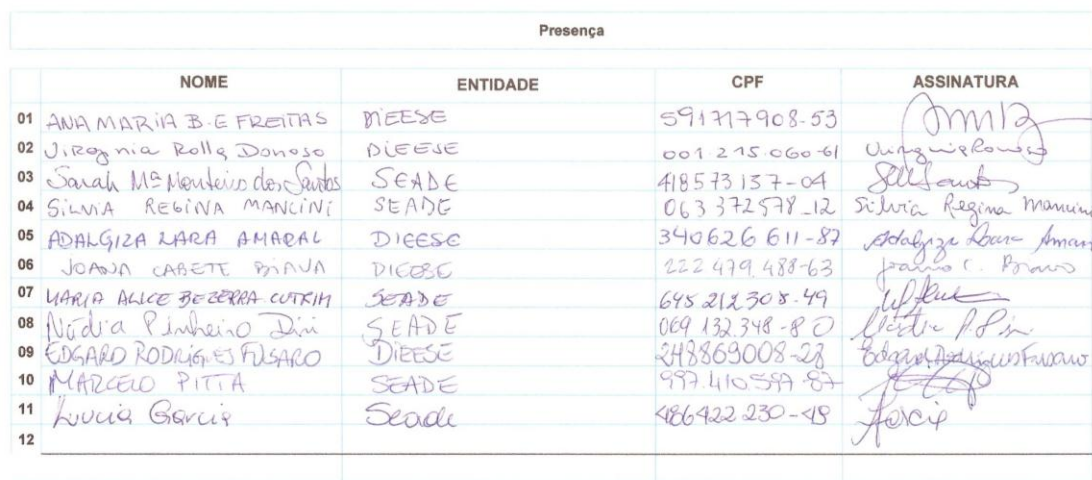 Presença
NOME ENTIDADE CPF ASSINATURA
01 ANA MARIA B. E FREITAS DIEESE 591717908-53
02 Virginia Rolla Donoso DIEESE 001.215.060-61
03 Sarah Mª Monteiro dos Santos SEADE 418573157-04
04 SILVIA REGINA MANCINI SEADE 063 372 578-12 Silvia Regina Mancini
05 ADALGIZA LARA AMARAL DIEESE 340626 611-87 Adalgiza Lara Amaral
06 JOANA CABETE BIAVA DIEESE 222 479 488-63
07 MARIA ALICE BEZERRA CUTRIM SEADE 645 212 305-49
08 Nádia Pinheiro Dini SEADE 069 132 348-80
09 EDGARD RODRIGUES FUSARO DIEESE 248869008-28 Edgard Rodrigues Fusaro
10 MARCELO PITTA SEADE 997.410 597-87
11 Lucia Garcia Seade 486422 230-49
12